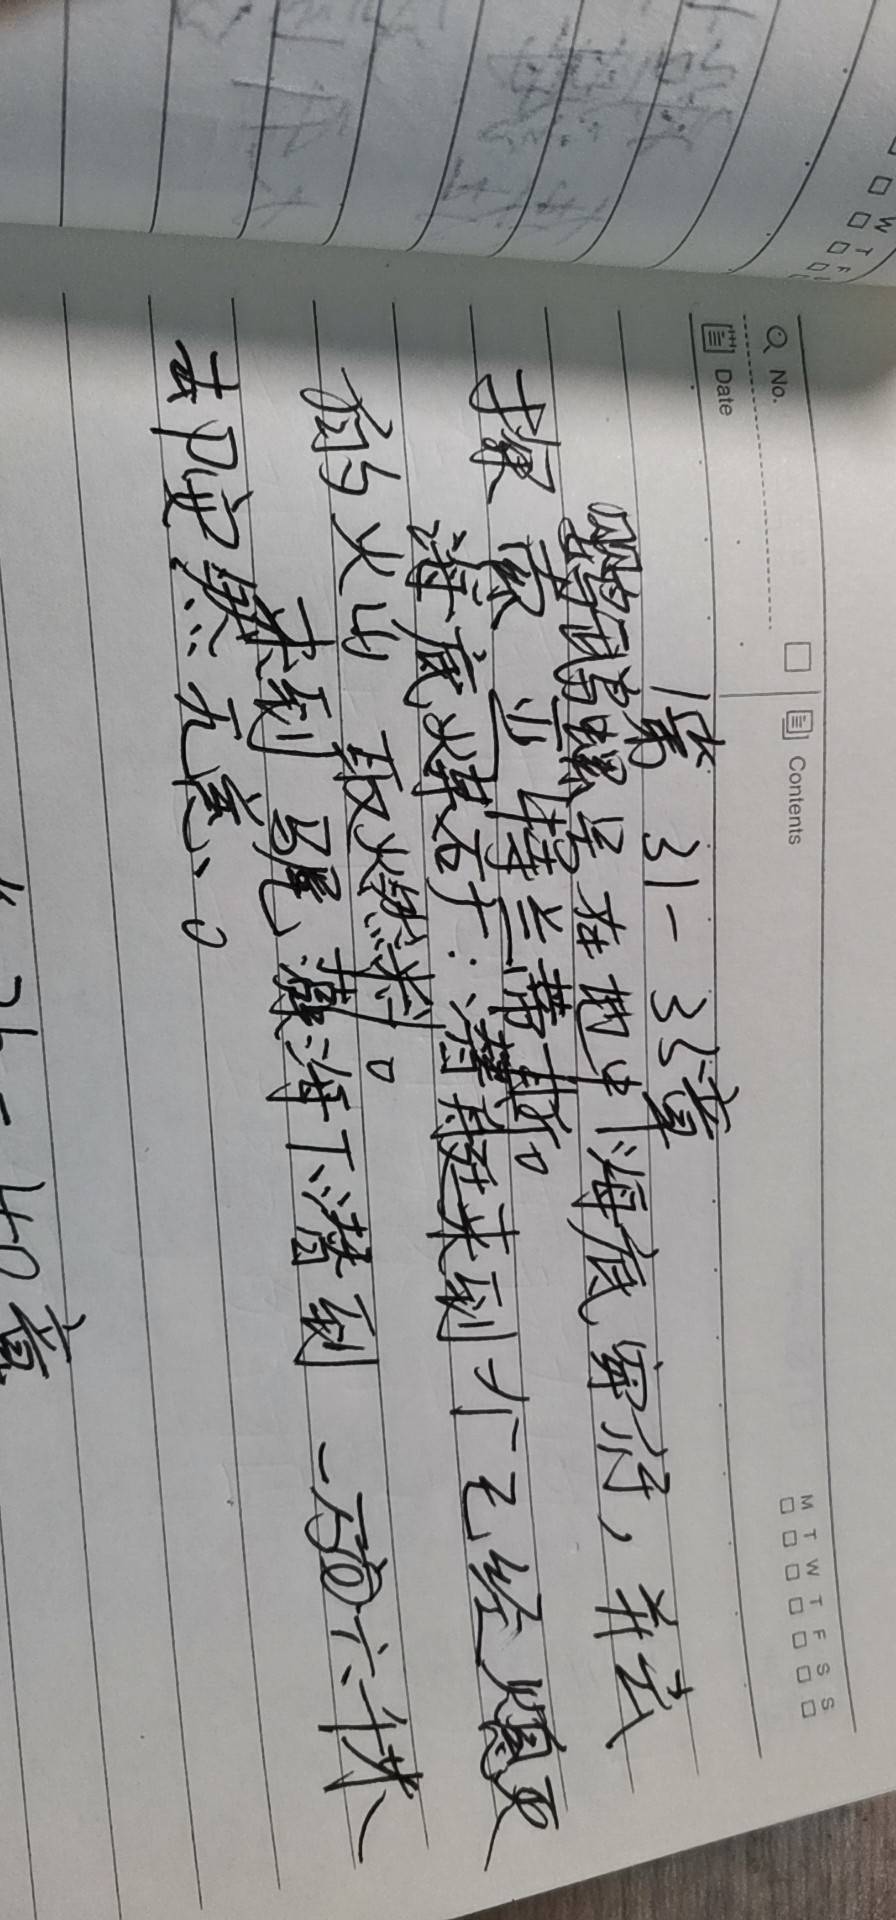 No.
Date
Contents
M T W T F S S
第31-35章
鹦鹉螺号在地中海底穿行，并去
探索亚特兰蒂斯。
海底煤矿：潜艇来到个已经熄灭
的火山取燃料。
来到马尾藻海下潜到一万六千米
去却安然无恙。
40章